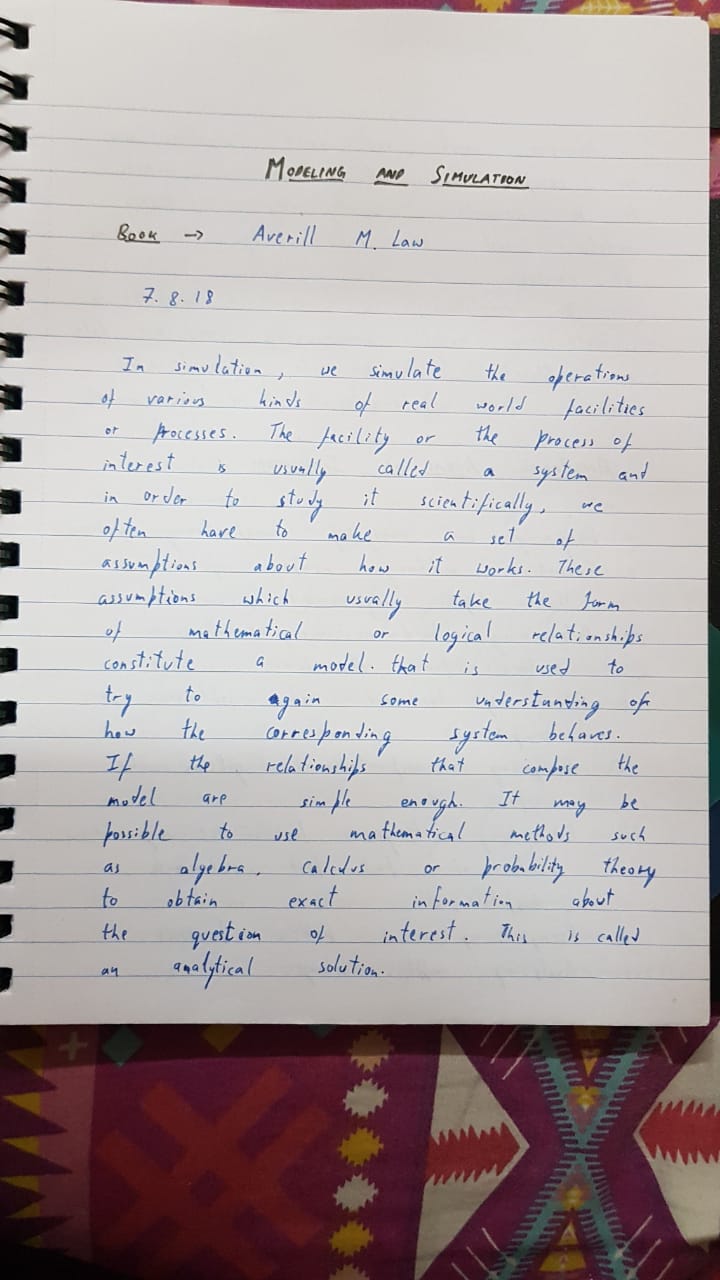 MODELING AND SIMULATION
Book → Averill M. Law
7.8.18
In simulation, we simulate the operations
of various kinds of real world facilities
or processes. The facility or the process of
interest is usually called a system and
in order to study it scientifically, we
often have to make a set of
assumptions about how it works. These
assumptions which usually take the form
of mathematical or logical relationships
constitute a model. that is used to
try to gain some understanding of
how the corresponding system behaves.
If the relationships that compose the
model are simple enough. It may be
possible to use mathematical methods such
as algebra, calculus or probability theory
to obtain exact information about
the question of interest. This is called
an analytical solution.